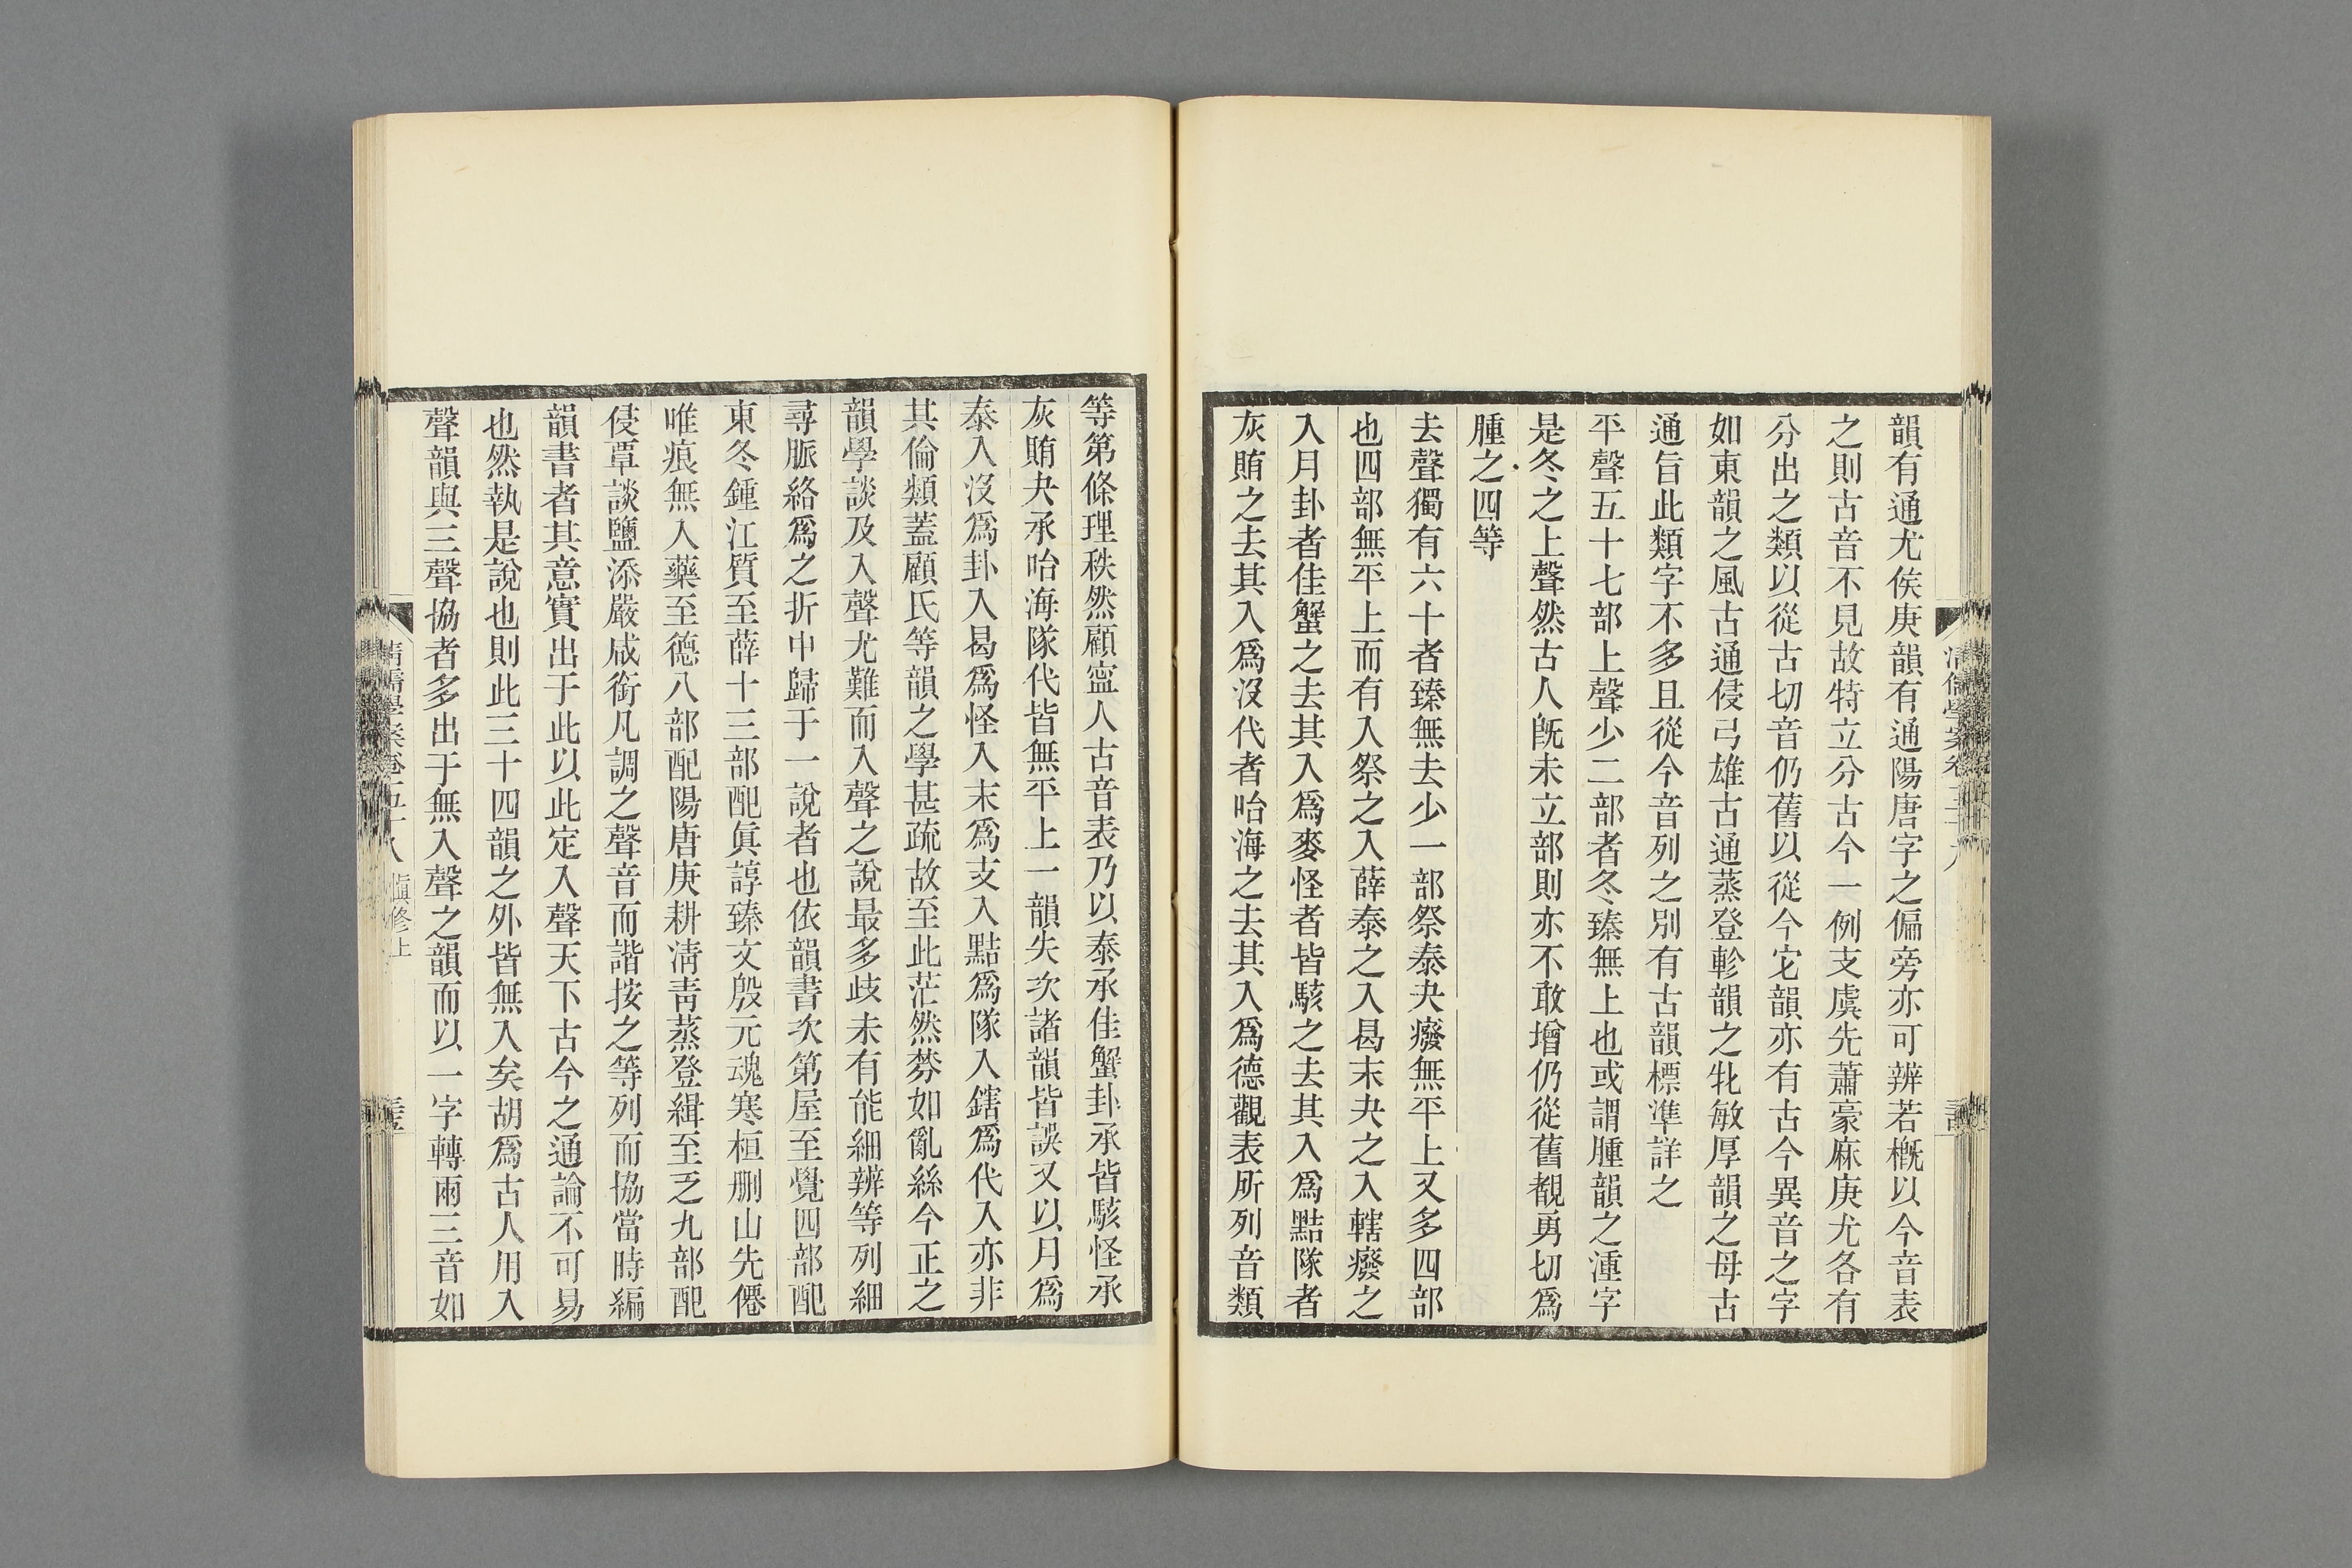 韻有通尤侯庚韻有通陽唐字之偏旁亦可辨若槪以今音表
之則古音不見故特立分古今一例支虞先蕭豪麻庚尤各有
分出之類以從古切音仍舊以從今它韻亦有古今異音之字
如東韻之風古通侵弓雄古通蒸登軫韻之牝敏厚韻之母古
通旨此類字不多且從今音列之別有古韻標準詳之
平聲五十七部上聲少二部者冬臻無上也或謂腫韻之湩字
是冬之上聲然古人旣未立部則亦不敢增仍從舊覩勇切爲
腫之四等
去聲獨有六十者臻無去少一部祭泰夬癈無平上又多四部
也四部無平上而有入祭之入薛泰之入曷末夬之入轄癈之
入月卦者佳蟹之去其入爲麥怪者皆駭之去其入爲黠隊者
灰賄之去其入爲沒代者咍海之去其入爲德觀表所列音類
等第條理秩然顧寍人古音表乃以泰承佳蟹卦承皆駭怪承
灰賄夬承咍海隊代皆無平上一韻失次諸韻皆誤又以月爲
泰入沒爲卦入曷爲怪入末爲夬入黠爲隊入鎋爲代入亦非
其倫類蓋顧氏等韻之學甚疏故至此茫然棼如亂絲今正之
韻學談及入聲尤難而入聲之說最多歧未有能細辨等列細
尋脈絡爲之折中歸于一說者也依韻書次第屋至覺四部配
東冬鍾江質至薛十三部配眞諄臻文殷元魂寒桓刪山先僊
唯痕無入藥至德八部配陽唐庚耕淸靑蒸登緝至乏九部配
侵覃談鹽添嚴咸銜凡調之聲音而諧按之等列而協當時編
韻書者其意實出于此以此定入聲天下古今之通論不可易
也然執是說也則此三十四韻之外皆無入矣胡爲古人用入
聲韻與三聲協者多出于無入聲之韻而以一字轉兩三音如
清儒學案卷五十八 愼修上